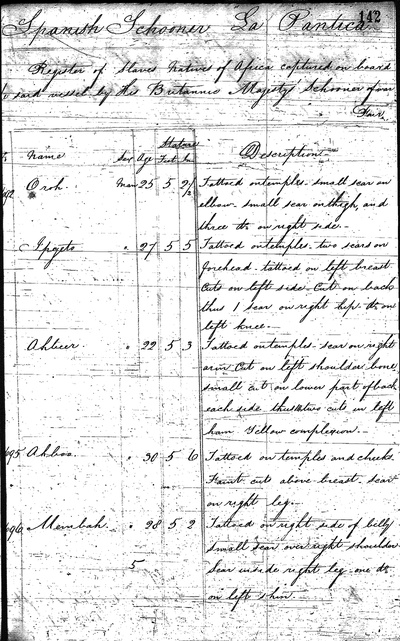 142
Spanish Schooner La Pantica
Register of Slaves Natives of Africa captured on board
said vessel by His Britannic Majesty Schooner of war
Fair
Stature
Name Sex Age Feet In Description
Oroh Man 25 5 2½ Tattoed on temples. small scar on
elbow. small scar on thigh, and
three do on right side.
27 5 5 Tattoed on temples. two scars on
forehead. tattoed on left breast
Cuts on left side. Cut on back
thus 1 scar on right hip. do on
left knee.
22 5 3 Tattoed on temples. scar on right
arm Cut on left shoulder bone
small cut on lower part of back
each side thus two cuts in left
ham Yellow complexion.
695 Ahboo " 30 5 6 Tattoed on temples and cheeks
Faint cuts above breast. scar
on right leg.
696 Membah " 28 5 2 Tattoed on right side of belly
small scar over right shoulder
5 Scar inside right leg one do
on left shin.